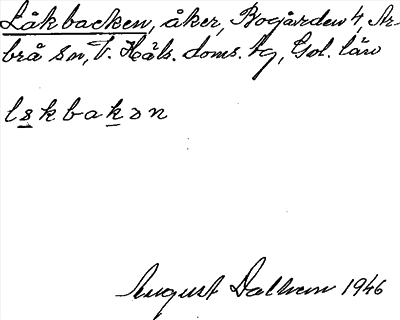 Låkbacken, åker, Bogården 4, Ar-
brå sn, V. Häls. doms. tg, Gvl. län
lskbakən
August Dalhem 1946